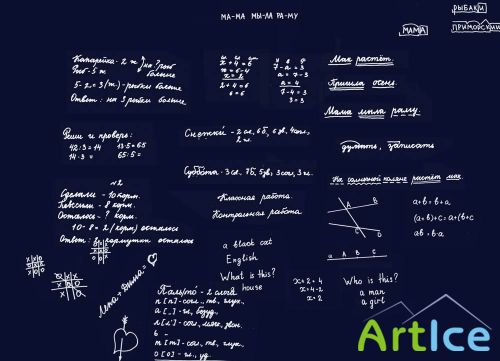 МА-МА МЫ-ЛА РА-МУ
РЫБАКИ
МАМА
ПРИМОРСКИЙ
на ? рыб больше
5-2=3 (ж) - рыбки больше
Ответ: на 3 рыбки больше
x+4=6
x=6-4
x=2
2+4=6
6=6
7-a=3
a=7-3
a=4
7-4=3
3=3
Мак растёт.
Пришла осень.
Мама мыла раму.
думать, записать
На солнечной поляне растёт мак.
Реши и проверь:
42:3=14 13·5=65
14·3= 65:5=
Снежки - 2 сл, 6 б, 6 зв, 4 согл,
2 гл.
Суббота - 3 сл. 7 б, 5 зв, 3 согл, 3 гл.
№2
Сделали - 10 корм.
Повесили - 8 корм.
Осталось - ? корм.
10-8=2 (корм) осталось
Ответ: 2 кормушки осталось
Классная работа
Контрольная работа
A B
C D
a A B C
a+b=b+a
(a+b)+c=a+(b+c
ab=b·a
a black cat
English
What is this?
house
x+2=4
x=4-2
x=2
Who is this?
a man
a girl
Пальто - 2 слога
п [п] - согл., тв., глух.
а [ ] - гл., безуд.
л [л'] - согл., мягк., звон.
ь -
т [т] - согл., тв., глух.
о [о] - гл., уд.
ArtIce